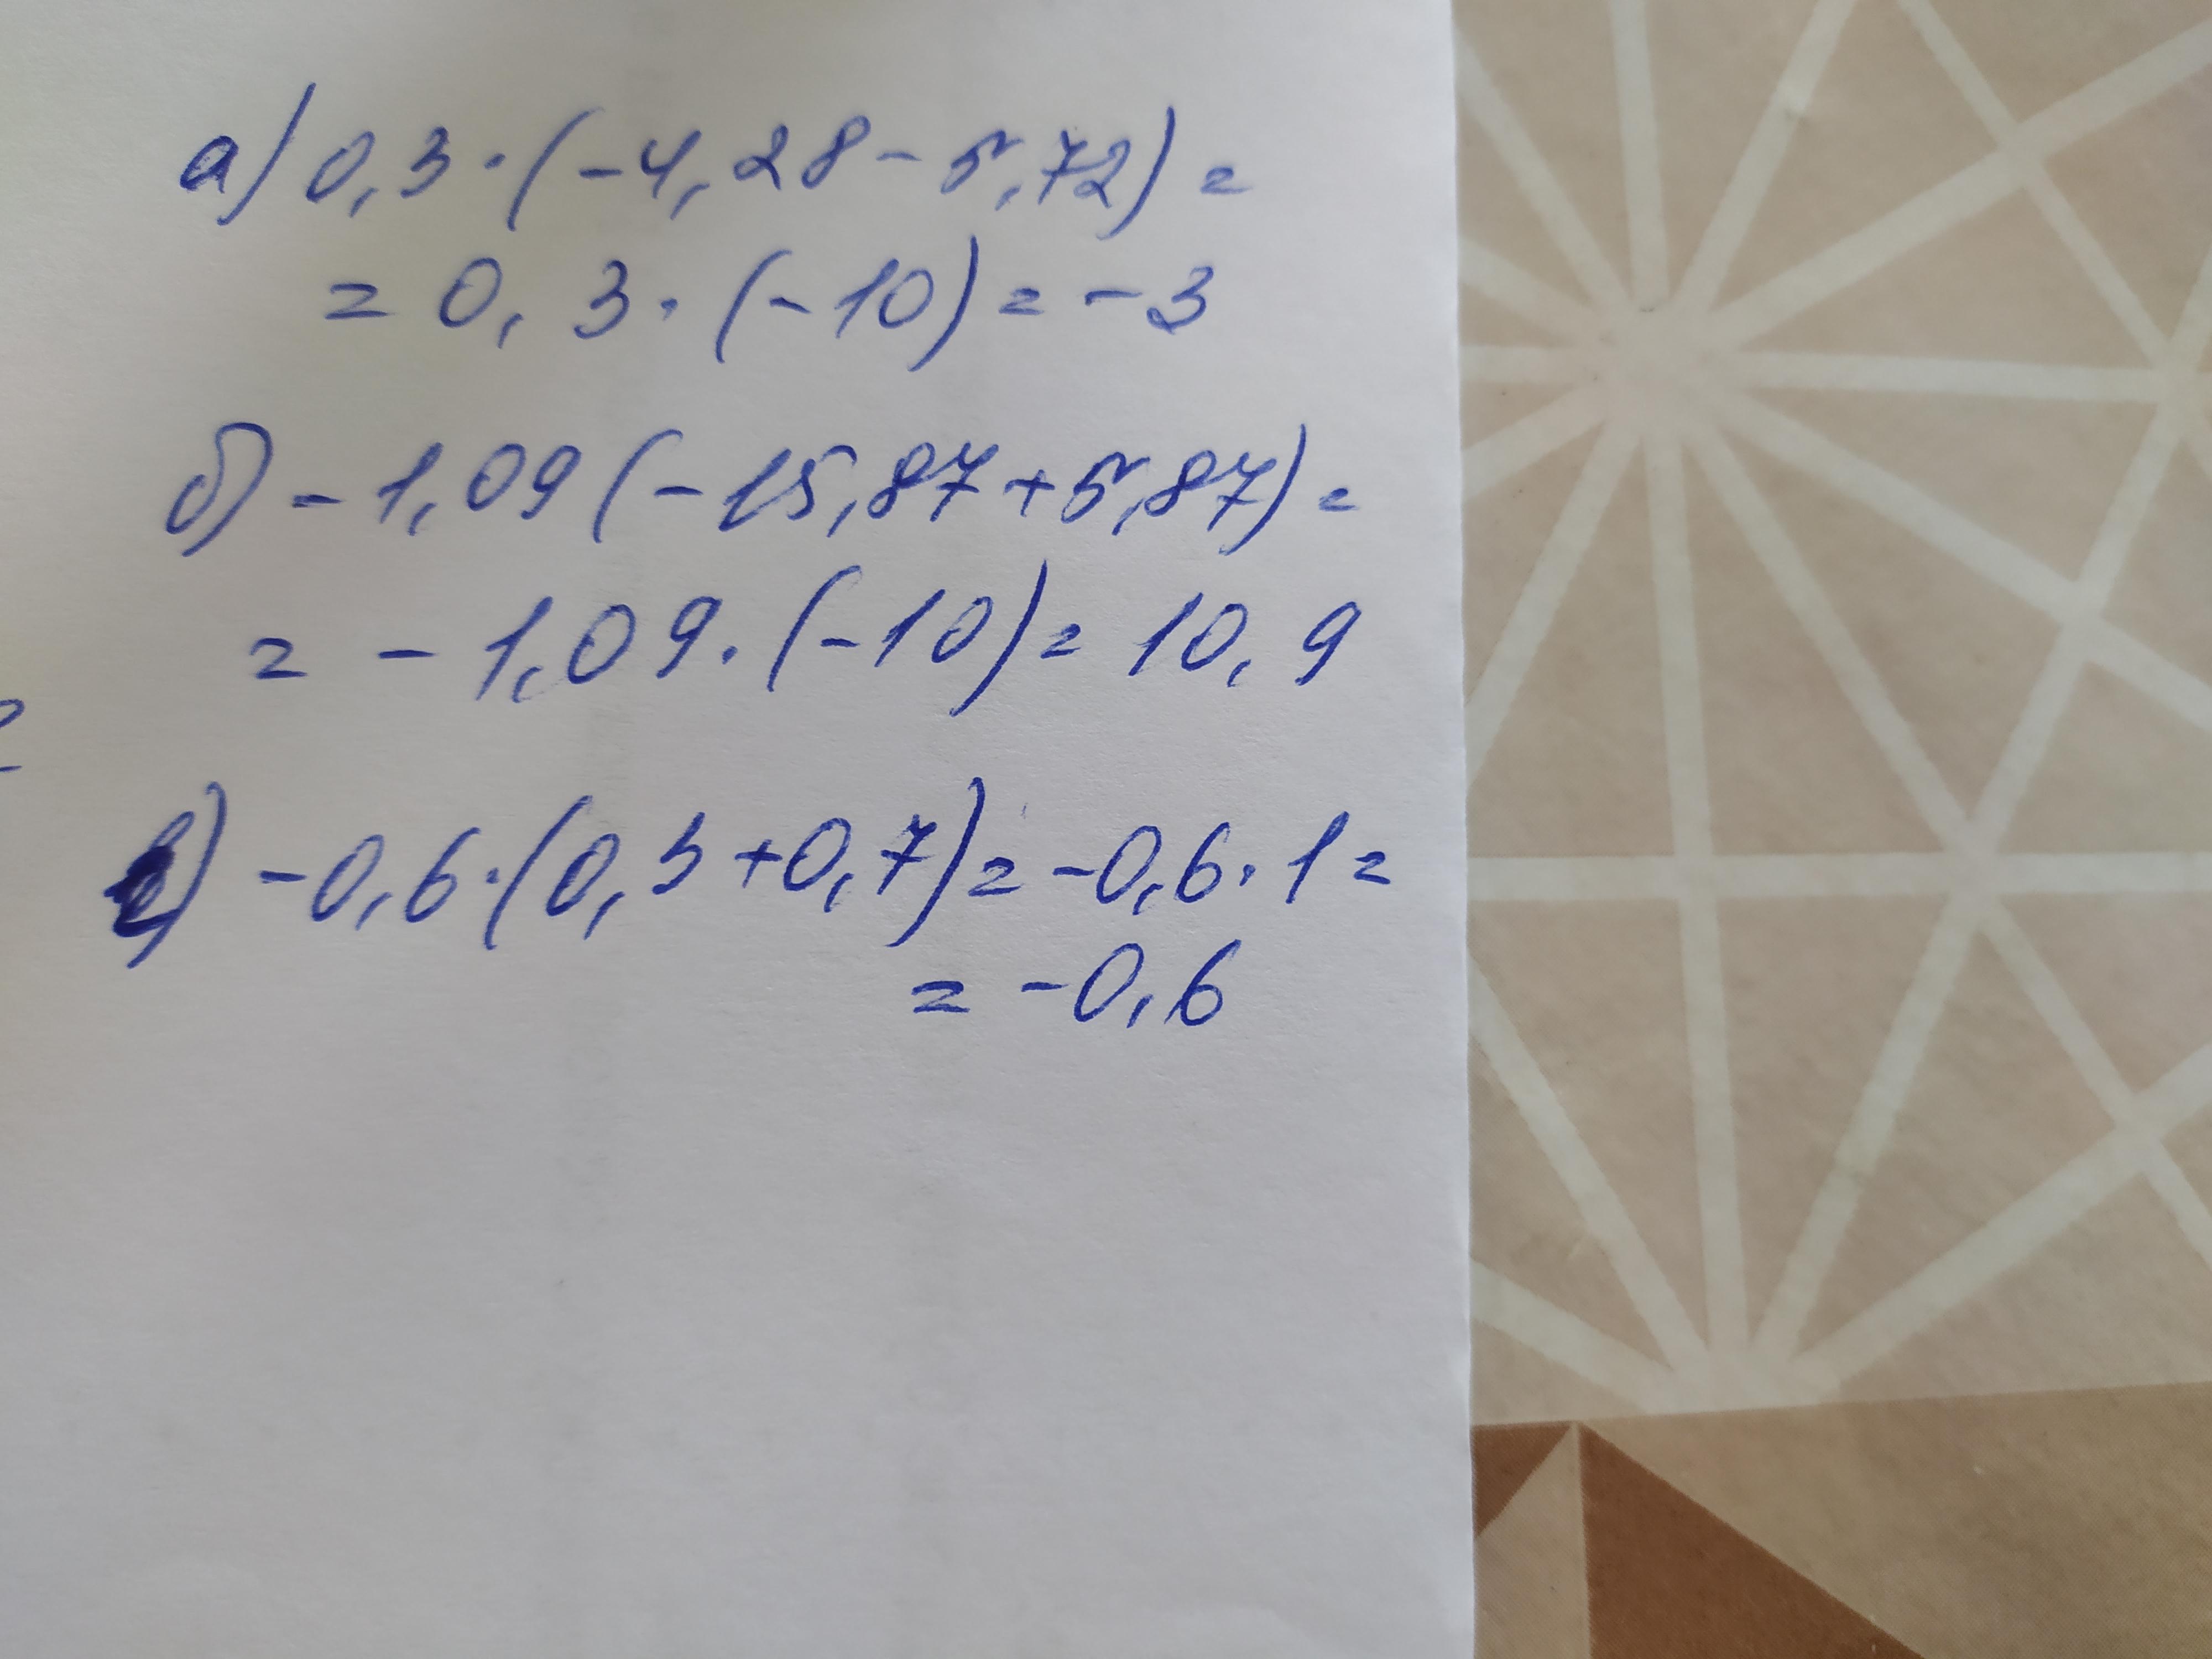 а) 0,3·(-4,28-5,72)=
=0,3·(-10)=-3
б) -1,09(-15,87+5,87)=
= -1,09·(-10)=10,9
в) -0,6·(0,3+0,7)=-0,6·1=
= -0,6